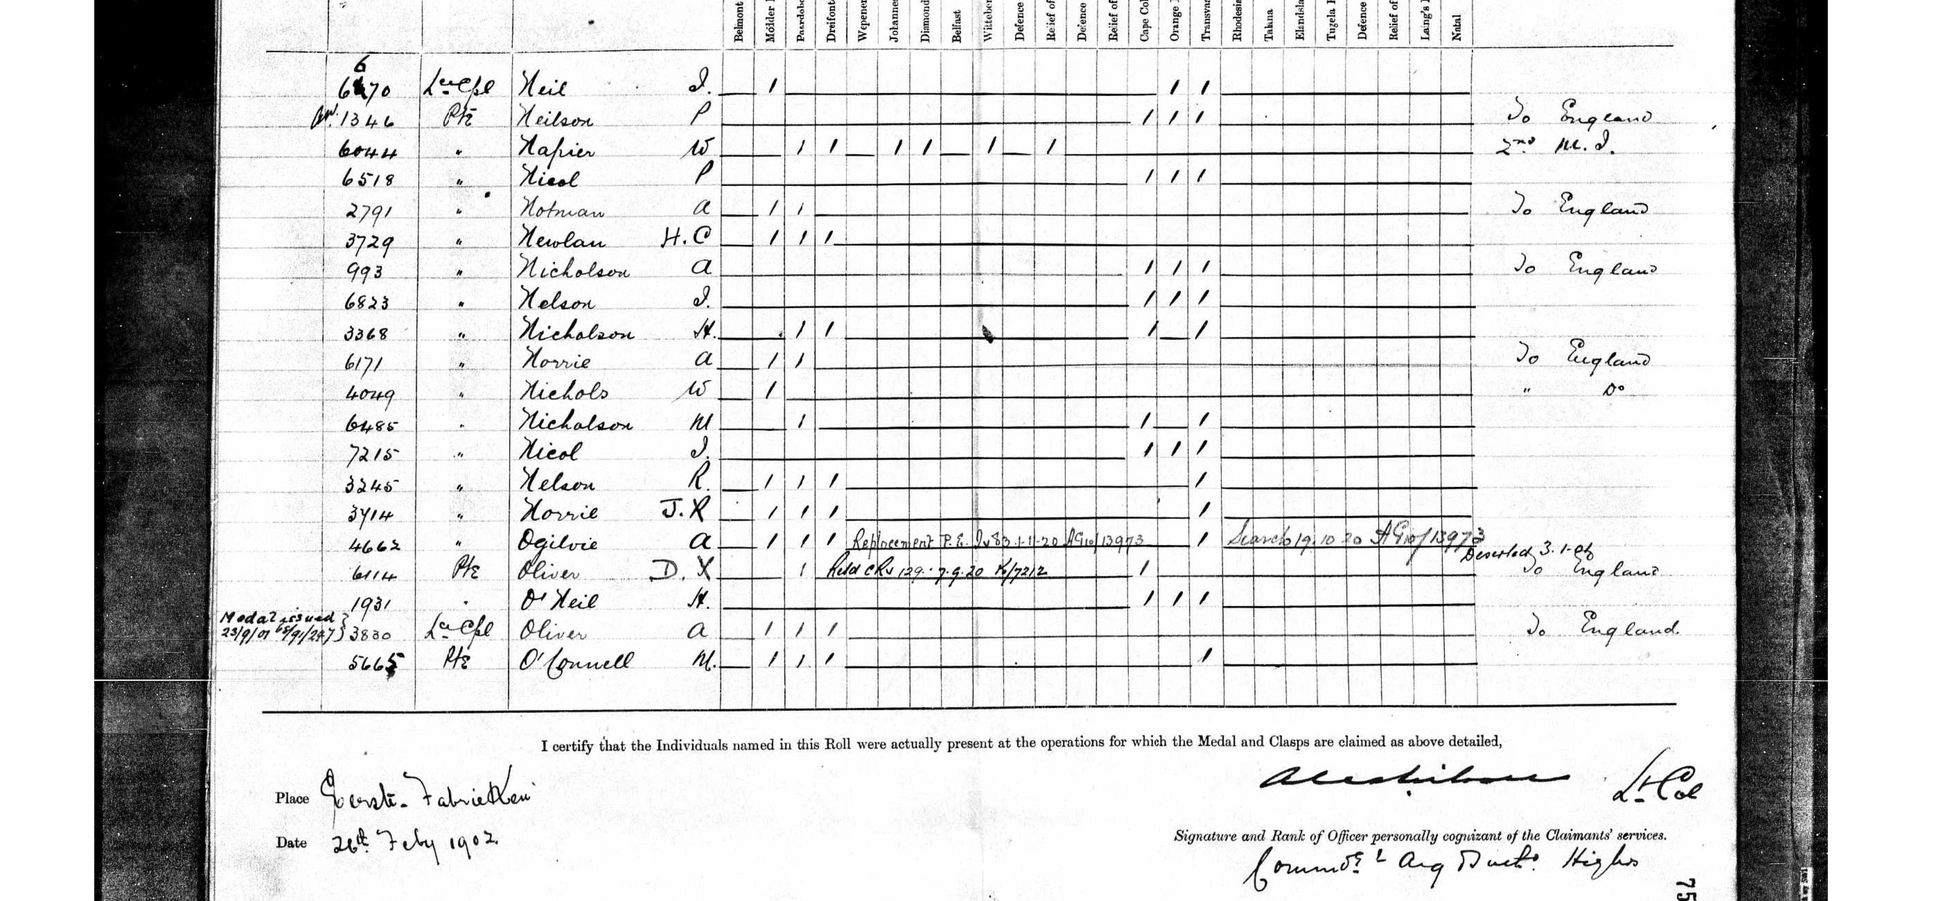 Belmont Modder Paardeb Dreifont Wepener Johannes Diamond Belfast Witteber Defence Relief of Defence Relief of Cape Col Orange Transvaa Rhodesia Talana Elandsla Tugela Defence Relief of Laing's Natal
6
6470 Lce Cpl Neil J.
1346 Pte Neilson P To England
6044 " Napier W 2nd M.I.
6518 " Nicol P
2791 " Notman A To England
3729 " Newlan H.C
993 " Nicholson A To England
6823 " Nelson J.
3368 " Nicholson H.
6171 " Norrie A To England
4049 " Nichols W " Do
6485 " Nicholson M
7215 " Nicol J.
3245 " Nelson R.
3714 " Norrie J.R
4662 " Ogilvie A Replacement 1-11-20 AG10/13973 Search 19.10.20 AG10/13973
Deserted 3.1.06
6114 Pte Oliver D. 129. 7.9.20 K/7212 To England
1931 " O'Neil H.
Medal issued
23/9/01 68/91/247 } 3830 Lce Cpl Oliver A To England.
5665 Pte O'Connell M.
I certify that the Individuals named in this Roll were actually present at the operations for which the Medal and Clasps are claimed as above detailed,
Place Eerste-Fabrieken
Lt Col
Date 26th Feby 1902
Signature and Rank of Officer personally cognizant of the Claimants' services.
Highrs
75